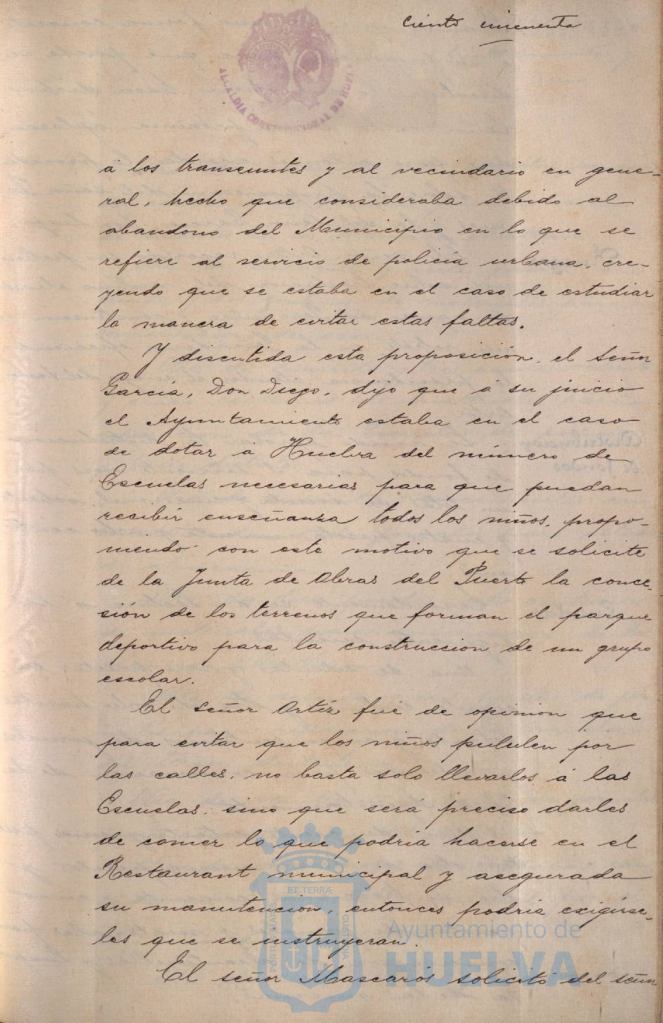 Ciento cincuenta
ALCALDIA CONSTITUCIONAL DE
á los transeuntes y al vecindario en gene-
ral, hecho que consideraba debido al
abandono del Municipio en lo que se
refiere al servicio de policía urbana, cre-
yendo que se estaba en el caso de estudiar
la manera de evitar estas faltas.
Y discutida esta proposición, el señor
García, Don Diego, dijo que á su juicio
el Ayuntamiento estaba en el caso
de dotar á Huelva del número de
Escuelas necesarias para que puedan
recibir enseñanza todos los niños, propo-
niendo con este motivo que se solicite
de la Junta de Obras del Puerto la conce-
sión de los terrenos que forman el parque
deportivo para la construccion de un grupo
escolar.
El señor Ortíz fué de opinion que
para evitar que los niños pululen por
las calles, no basta solo llevarlos á las
Escuelas, sino que será preciso darles
de comer lo que podria hacerse en el
Restaurant municipal y asegurada
su manutención, entonces podria exigírse-
les que se instruyeran.
El señor Mascarós solicitó del señor
Ayuntamiento de
HUELVA